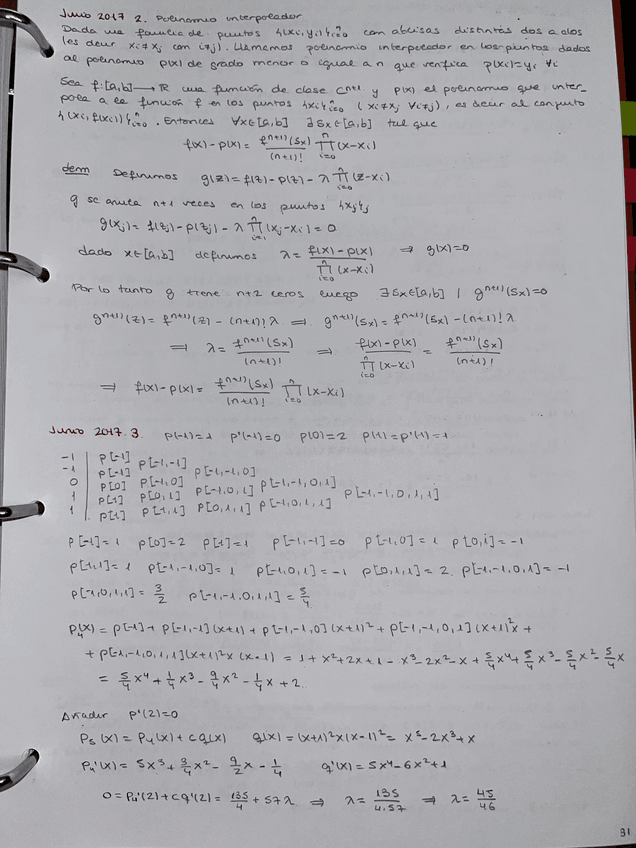 Junio 2017 2. Polinomio interpolador
Dada una familia de puntos {(xi,yi)}ⁿi=0 con abcisas distintas dos a dos
(es decir xi≠xj con i≠j). Llamamos polinomio interpolador en los puntos dados
al polinomio p(x) de grado menor o igual a n que verifica p(xi)=yi ∀i
Sea f:[a,b]→ℝ una función de clase Cⁿ⁺¹ y p(x) el polinomio que inter-
pola a la función f en los puntos {xi}ⁿi=0 (xi≠xj ∀i≠j), es decir al conjunto
{(xi,f(xi))}ⁿi=0. Entonces ∀x∈[a,b] ∃ Sx∈[a,b] tal que
f(x)-p(x)= fⁿ⁺¹⁾(Sx)/(n+1)! ∏ⁿi=0 (x-xi)
dem Definimos g(z)=f(z)-p(z)-λ ∏ⁿi=0 (z-xi)
g se anula n+1 veces en los puntos {xj}j
g(xj)= f(zj)-p(zj)-λ ∏ⁿi=1 (xj-xi)=0
dado x∈[a,b] definimos λ= (f(x)-p(x))/∏ⁿi=0 (x-xi) ⇒ g(x)=0
Por lo tanto g tiene n+2 ceros luego ∃Sx∈[a,b] / gⁿ⁺¹⁾(Sx)=0
gⁿ⁺¹⁾(z)=fⁿ⁺¹⁾(z)-(n+1)!λ ⇒ gⁿ⁺¹⁾(Sx)=fⁿ⁺¹⁾(Sx)-(n+1)!λ
⇒ λ= fⁿ⁺¹⁾(Sx)/(n+1)! ⇒ (f(x)-p(x))/∏ⁿi=0 (x-xi) = fⁿ⁺¹⁾(Sx)/(n+1)!
⇒ f(x)-p(x)= fⁿ⁺¹⁾(Sx)/(n+1)! ∏ⁿi=0 (x-xi)
Junio 2017 3. p(-1)=1 p'(-1)=0 p(0)=2 p(1)=p'(1)=1
-1 | p[-1]
-1 | p[-1] p[-1,-1]
0 | p[0] p[-1,0] p[-1,-1,0]
1 | p[1] p[0,1] p[-1,0,1] p[-1,-1,0,1]
1 | p[1] p[1,1] p[0,1,1] p[-1,0,1,1] p[-1,-1,0,1,1]
p[-1]=1 p[0]=2 p[1]=1 p[-1,-1]=0 p[-1,0]=1 p[0,1]=-1
p[1,1]=1 p[-1,-1,0]=1 p[-1,0,1]=-1 p[0,1,1]=2 p[-1,-1,0,1]=-1
p[-1,0,1,1]=3/2 p[-1,-1,0,1,1]=5/4
p₄(x)=p[-1]+p[-1,-1](x+1)+p[-1,-1,0](x+1)²+p[-1,-1,0,1](x+1)²x+
+p[-1,-1,0,1,1](x+1)²x(x-1)=1+x²+2x+1-x³-2x²-x+5/4x⁴+5/4x³-5/4x²-5/4x
=5/4x⁴+1/4x³-9/4x²-1/4x+2
Añadir p'(2)=0
P₅(x)=P₄(x)+cq(x) q(x)=(x+1)²x(x-1)²=x⁵-2x³+x
P₄'(x)=5x³+3/4x²-9/2x-1/4 q'(x)=5x⁴-6x²+1
0=P₄'(2)+cq'(2)=135/4+57λ ⇒ λ=135/4·57 ⇒ λ=45/46
31